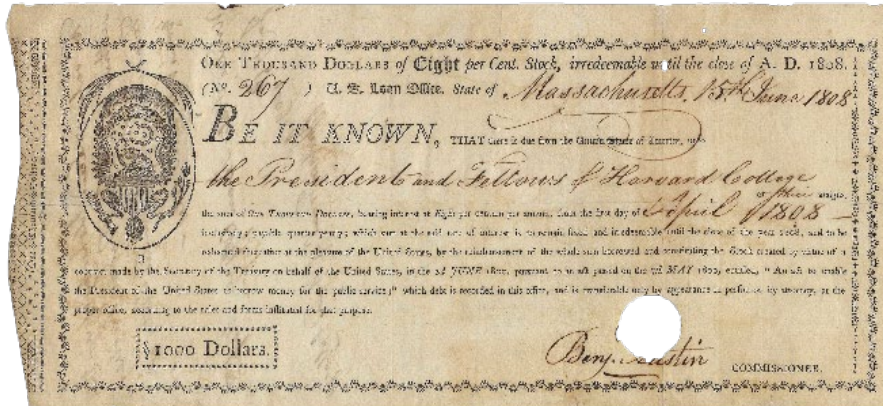 ONE THOUSAND DOLLARS of Eight per Cent. Stock, irredeemable until the close of A. D. 1808.
(No. 267 ) U. S. Loan Office. State of Massachusetts, 15th June 1808
BE IT KNOWN, THAT there is due from the United States of America, unto
the President and Fellows of Harvard College
or their assigns,
the sum of ONE THOUSAND DOLLARS, bearing interest at Eight per centum per annum, from the first day of April 1808
inclusively, payable quarter yearly; which sum at the said rate of interest is to remain fixed and irredeemable until the close of the year 1808, and to be
redeemed thereafter at the pleasure of the United States, by the reimbursement of the whole sum borrowed and constituting the Stock created by virtue of a
contract made by the Secretary of the Treasury on behalf of the United States, in the JUNE 1800, pursuant to an act passed on the 7th MAY 1800, entitled, "An act to enable
the President of the United States to borrow money for the public service;" which debt is recorded in this office, and is transferable only by appearance in person or by attorney, at the
proper office, according to the rules and forms instituted for that purpose.
1000 Dollars.
Benj. Austin
COMMISSIONER.